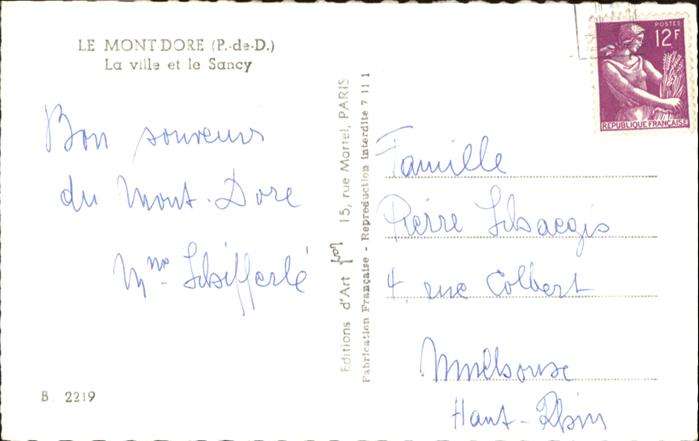 LE MONT DORE (P.-de-D.)
La ville et le Sancy
Bon souvenir
du Mont-Dore
Mme Schifferlé
B 2219
Editions d'Art 15, rue Martel, PARIS
Fabrication Française - Reproduction interdite 7 11 1
POSTES
12F
REPUBLIQUE FRANÇAISE
Famille
Pierre
4 rue Colbert
Mulhouse
Haut-Rhin